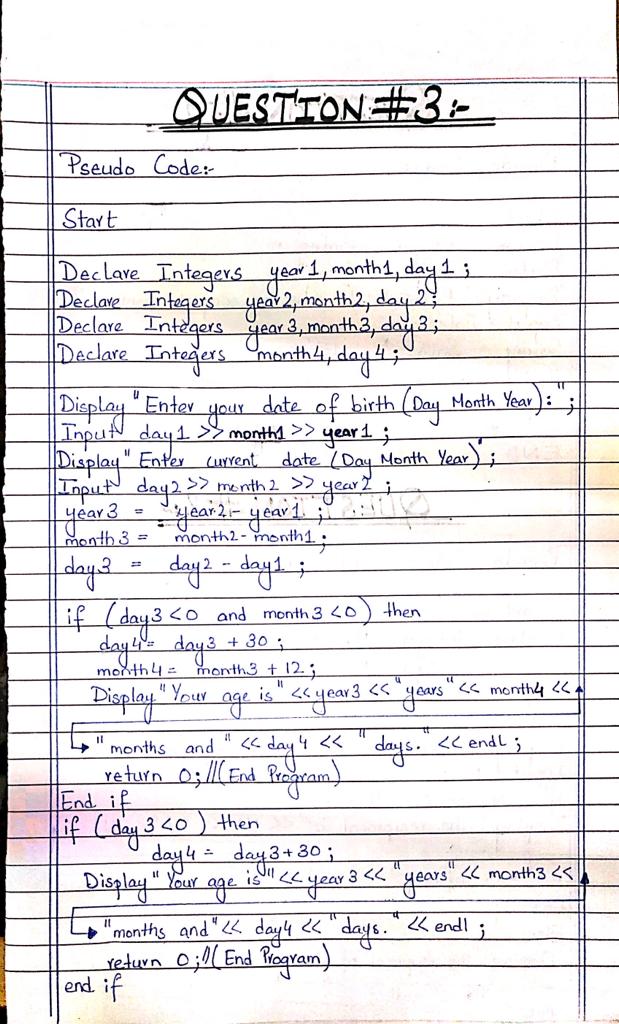 QUESTION #3:-
Pseudo Code:-
Start
Declare Integers year1, month1, day1 ;
Declare Integers year2, month2, day2 ;
Declare Integers year3, month3, day3 ;
Declare Integers month4, day4 ;
Display "Enter your date of birth (Day Month Year): " ;
Input day1 >> month1 >> year1 ;
Display "Enter current date (Day Month Year)" ;
Input day2 >> month2 >> year2 ;
year3 = year2 - year1 ;
month3 = month2 - month1 ;
day3 = day2 - day1 ;
if (day3 <0 and month3 <0) then
day4 = day3 + 30 ;
month4 = month3 + 12 ;
Display "Your age is" << year3 << "years" << month4 <<
"months and " << day4 << " days." << endl ;
return 0; //(End Program)
End if
if (day3 <0) then
day4 = day3+30 ;
Display "Your age is" << year3 << "years" << month3 <<
"months and" << day4 << "days." << endl ;
return 0; //(End Program)
end if